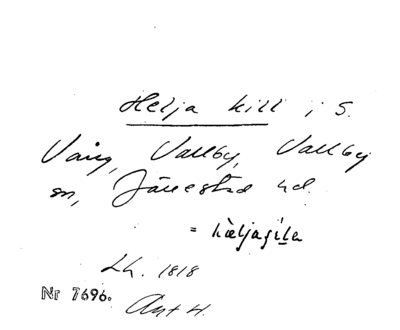 Helja kill i S.
Vång, Vallby, Vallby
sn, Järrestad hd.
= hæljagila
Lh. 1818
Nr 7696.